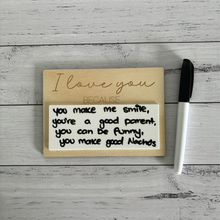 I love you
BECAUSE
you make me smile,
you're a good parent,
you can be funny,
you make good Nachos